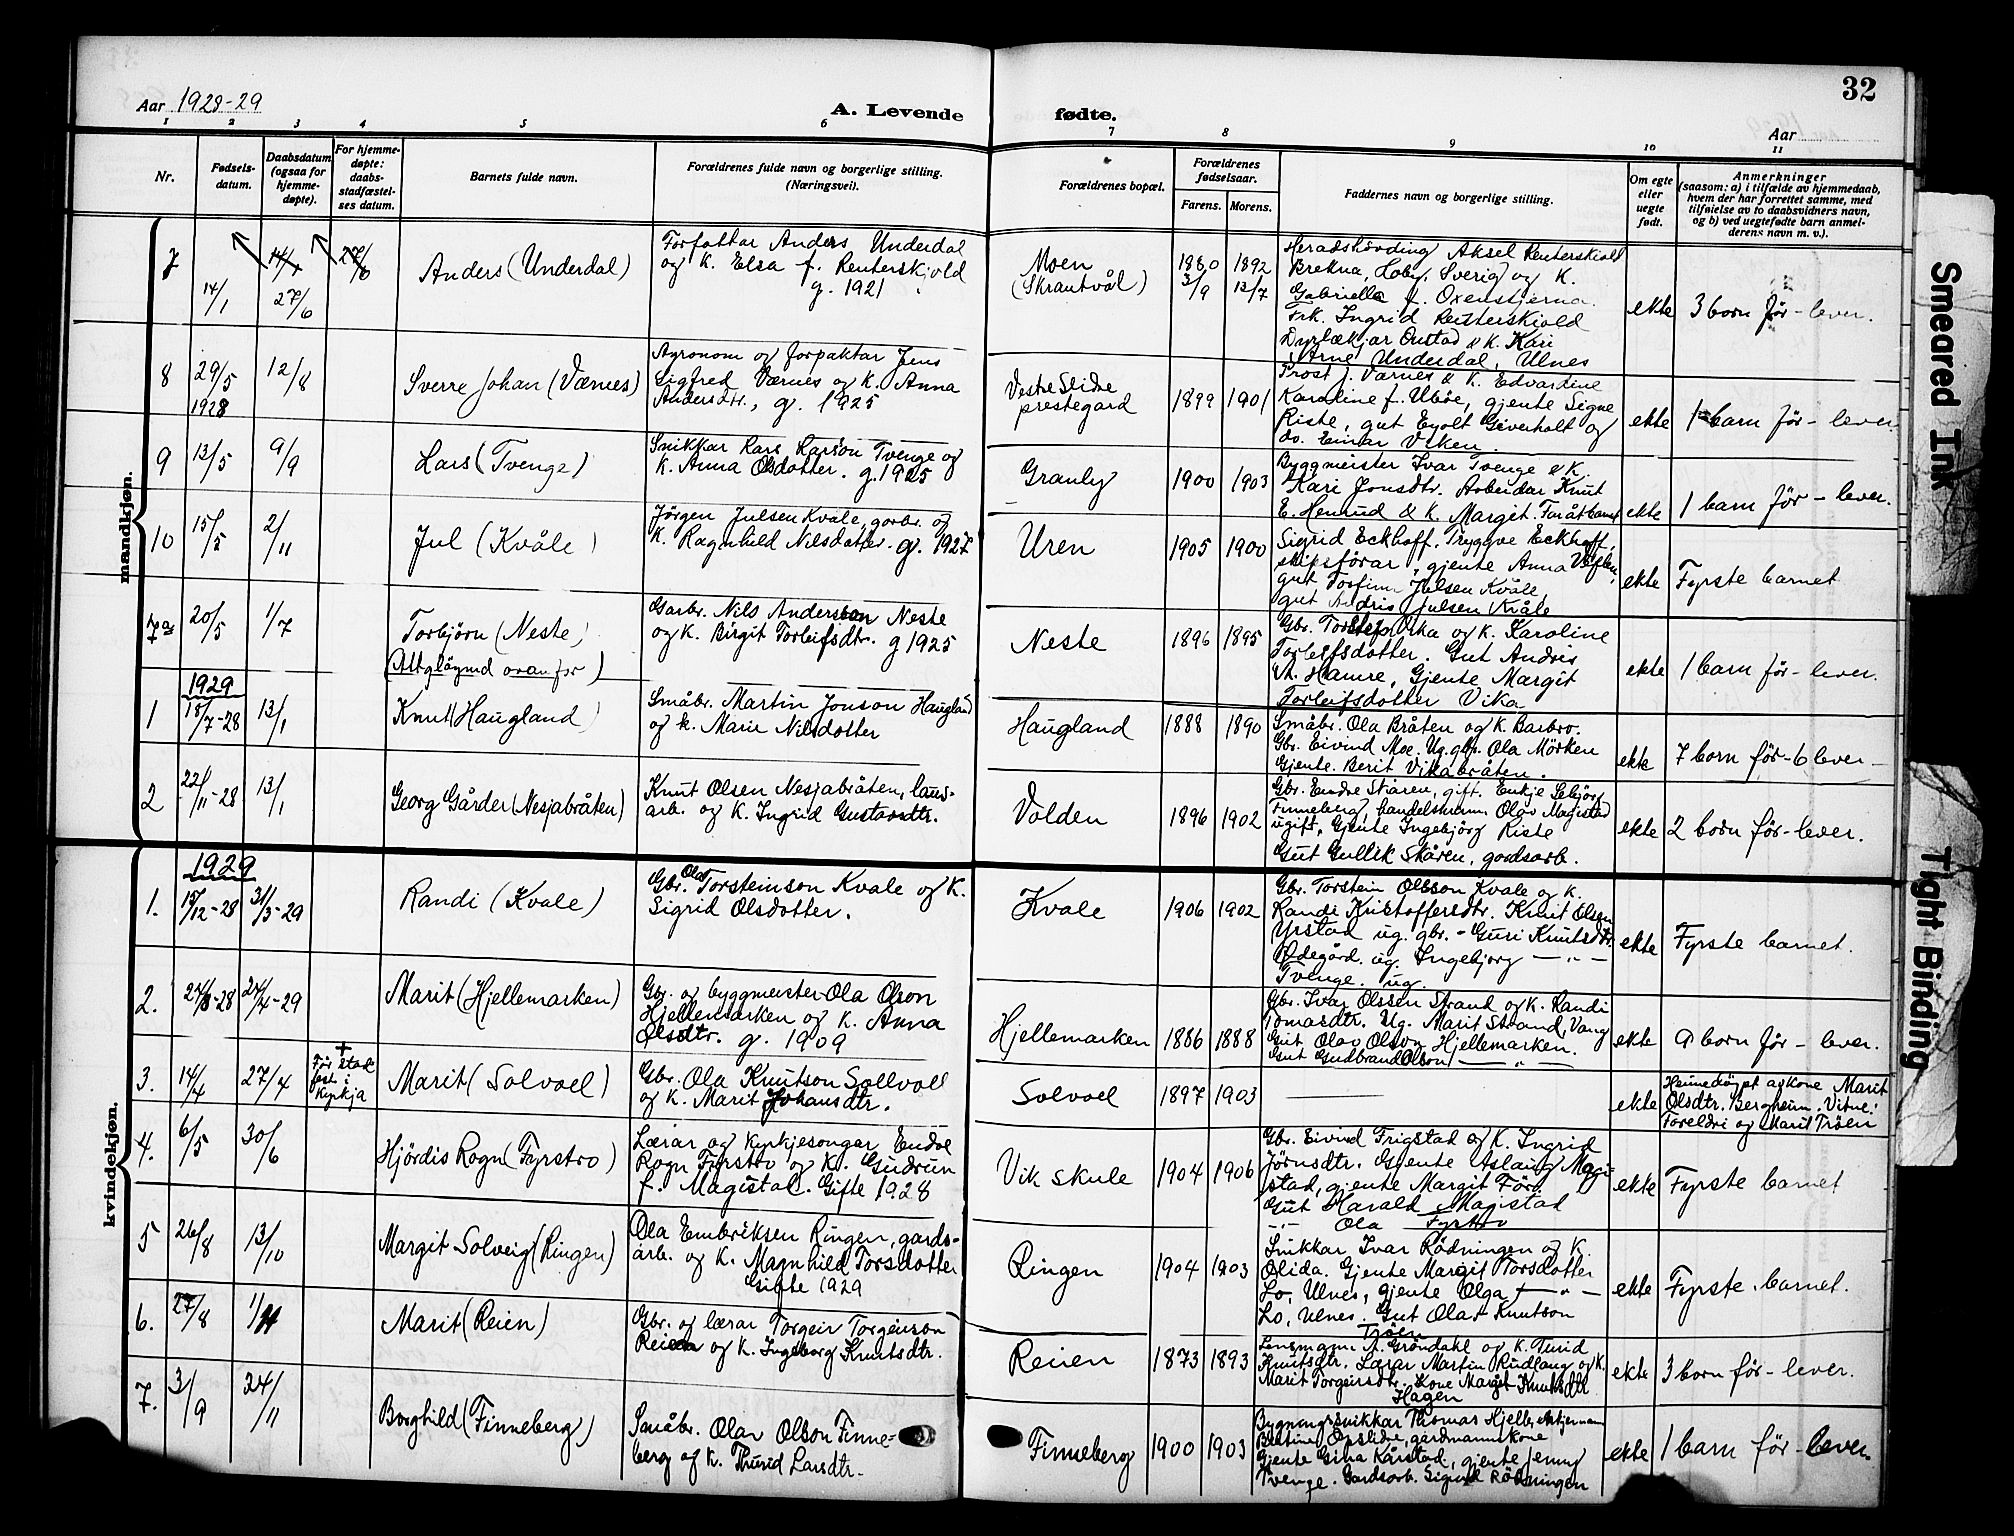 32
Aar 1928-29
A. Levende fødte.
Aar
1 2 3 4 5 6 7 8 9 10 11
Nr.
Fødsels-
datum.
Daabsdatum
(ogsaa for
hjemme-
døpte).
For hjemme-
døpte:
daabs-
stadfæstel-
ses datum.
Barnets fulde navn.
Forældrenes fulde navn og borgerlige stilling.
(Næringsvei).
Forældrenes bopæl.
Forældrenes
fødselsaar.
Farens. Morens.
Faddernes navn og borgerlige stilling.
Om egte
eller
uegte
født.
Anmerkninger
(saasom: a) i tilfælde av hjemmedaab,
hvem der har forrettet samme, med
tilføielse av to daabsvidners navn,
og b) ved uegtefødte barn anmel-
derens navn m. v.).
mandkjøn.
7
14/1
27/6
Anders (Underdal)
Forfattar Anders Underdal
og K. Elsa f. Renterskjold
g. 1921
Moen
(Skrautvål)
1880 3/9
1892 13/7
Heradshövding Aksel Renterskiold
Brekna, Loby, Sverig og K.
Gabriella f. Oxenstjerna.
Frk. Ingrid Reuterskiold
Dyrlækjar Onstad & K. Kari
Arne Underdal, Ulnes
ekte
3 born før - lever.
8
29/5
1928
12/8
Sverre Johan (Værnes)
Agronom og forpaktar Jens
Sigfred Værnes og K. Anna
Andersdtr., g. 1925
Vestre Slidre
prestegard
1899
1901
Prost J. Værnes & K. Edvardine
Karoline f. Ubøe, gjente Signe
Riste, gut Eyolt Geverholt og
do. Einar Viken.
ekte
1 barn før - lever
9
13/5
9/9
Lars (Tvenge)
Snikkar Lars Larson Tvenge og
K. Anna Olsdotter. g. 1925
Granly
1900
1903
Byggmeister Ivar Tvenge & K.
Kari Jonsdtr. Arbeidar Knut
E. Hemud & K. Margit.
ekte
1 barn før - lever.
10
15/5
2/11
Jul (Kvåle)
Jörgen Julsen Kvale, garbr. og
K. Ragnhild Nilsdotter. g. 1927
Uren
1905
1900
Sigrid Eckhoff. Tryggve Eckhoff,
skipsförar, gjente Anna
gut Torfinn Julsen Kvåle,
gut Andris Julsen Kvåle
ekte
Fyrste barnet
7a
20/5
1/7
Torbjörn (Neste)
(Attgløymd ovanfor)
Garbr. Nils Anderson Neste
og K. Birgit Torleifsdtr. g 1925
Neste
1896
1895
Gbr. Torstein Vika og K. Karoline
Torleifsdotter. Gut Andris
Th. Hamre, Gjente Margit
Torleifsdotter Vika
ekte
1 barn før - lever.
1929
1
15/7-28
13/1
Knut (Haugland)
Småbr. Martin Jonson Haugland
og k. Marie Nilsdotter
Haugland
1888
1890
Småbr. Ola Bråten og K. Barbro.
Gbr. Eivind Moe. Ug. gbr. Ola Mörken
Gjente. Berit Vikabråten.
ekte
7 born før - 6 lever -
2
22/11-28
13/1
Georg Gårder (Nesjabråten)
Knut Olsen Nesjabråten, laus-
arb. og K. Ingrid Gustavsdtr.
Volden
1896
1902
Gbr. Endre Skåren, gift. Enkje Sebjörg
Finneberg, handelsmann Olav Magistad
ugift, Gjente Ingebjörg Riste
Gut Gullik Skåren, gardsarb.
ekte
2 born før - lever.
kvindekjøn.
1929
1.
15/12-28
31/3-29
Randi (Kvale)
Gbr. Olav Torsteinson Kvale og K.
Sigrid Olsdotter.
Kvale
1906
1902
Gbr. Torstein Olsson Kvale og K.
Randi Kristoffersdtr. Knut Olsen
Yrstad ug. gbr. - Guri Knutsdtr.
Ødegård. ug. Ingebjorg — „ —
Tvenge. ug.
ekte
Fyrste barnet.
2.
24/8-28
24/4-29
Marit (Hjellemarken)
Gbr. og byggmeister Ola Olson
Hjellemarken og K. Anna
Olsdtr. g. 1909
Hjellemarken
1886
1888
Gbr. Ivar Olssen Strand og K. Randi
Tomasdtr. Ug. Marit Strand, Vang
Gut Olav Olson Hjellemarken.
Gut Gudbrand Olson — „ —
ekte
9 born før - lever.
3.
14/4
27/4
+
Før stad
fest i
Kyrkja
Marit (Solvoel)
Gbr. Ola Knutson Sollvoll
og K. Marit Johansdtr.
Solvoel
1897
1903
ekte
Heimedöypt av kone Marit
Olsdtr. Bergheim. Vitne:
Foreldri og Marit Tröen
4.
6/5
30/6
Hjördis Rogn (Fyrstro)
Lærar og kyrkjesongar Endre
Rogn Fyrstro og K. Gudrun
f. Magistad. Gifte 1928
Vik skule
1904
1906
Gbr. Eivind Frigstad og K. Ingrid
Jörnsdtr. Gjente Aslaug Magi-
stad, gjente Margit Förö
Gut Harald Magistad
-„- Ola Fyrstro
ekte
Fyrste barnet
5
26/8
13/10
Margit Solveig (Ringen)
Ola Embriksen Ringen, gards-
arb. og K. Magnhild Torsdotter
Gifte 1929
Ringen
1904
1903
Snikkar Ivar Rödningen og K.
Olida. Gjente Margit Torsdotter
Lo, Ulnes, gjente Olga — „ —
Lo, Ulnes. Gut Olav Knutson
Tröen
ekte
Fyrste barnet.
6.
27/8
1/11
Marit (Reien)
Gbr. og lærar Torgeir Torgeirson
Reien og K. Ingeborg Knutsdtr.
Reien
1873
1893
Lensmann A. Gröndahl og K. Turid
Knutsdtr. Lærar Martin Rudlang og K.
Marit Torgeirsdtr. Kone Margit Knutsdtr
Hagen
ekte
3 born før - lever.
7.
3/9
24/11
Borghild (Finneberg)
Småbr. Olav Olson Finne-
berg og K. Thurid Larsdtr.
Finneberg
1900
1903
Bygningssnikkar Thomas Hjelle,
gardmannskone
Gjente Gina Kårstad, gjente Jenny
Tvenge. Gardsarb. Sigurd Rödningen
ekte
1 barn før - lever.
Smeared Ink
Tight Binding